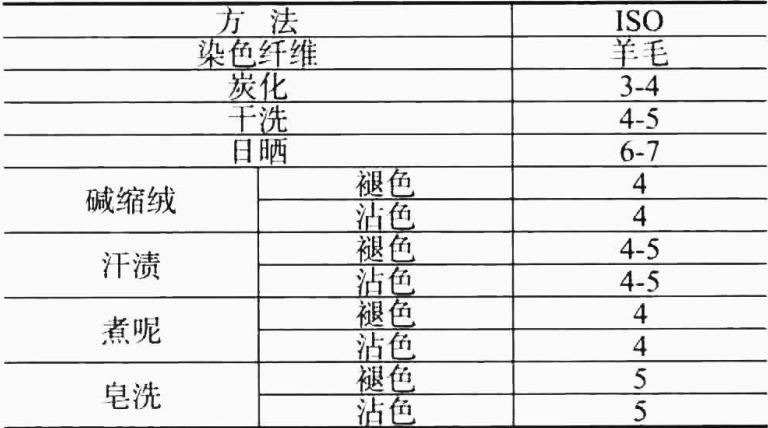 方 法 ISO
染色纤维 羊毛
炭化 3-4
干洗 4-5
日晒 6-7
碱缩绒 褪色 4
沾色 4
汗渍 褪色 4-5
沾色 4-5
煮呢 褪色 4
沾色 4
皂洗 褪色 5
沾色 5